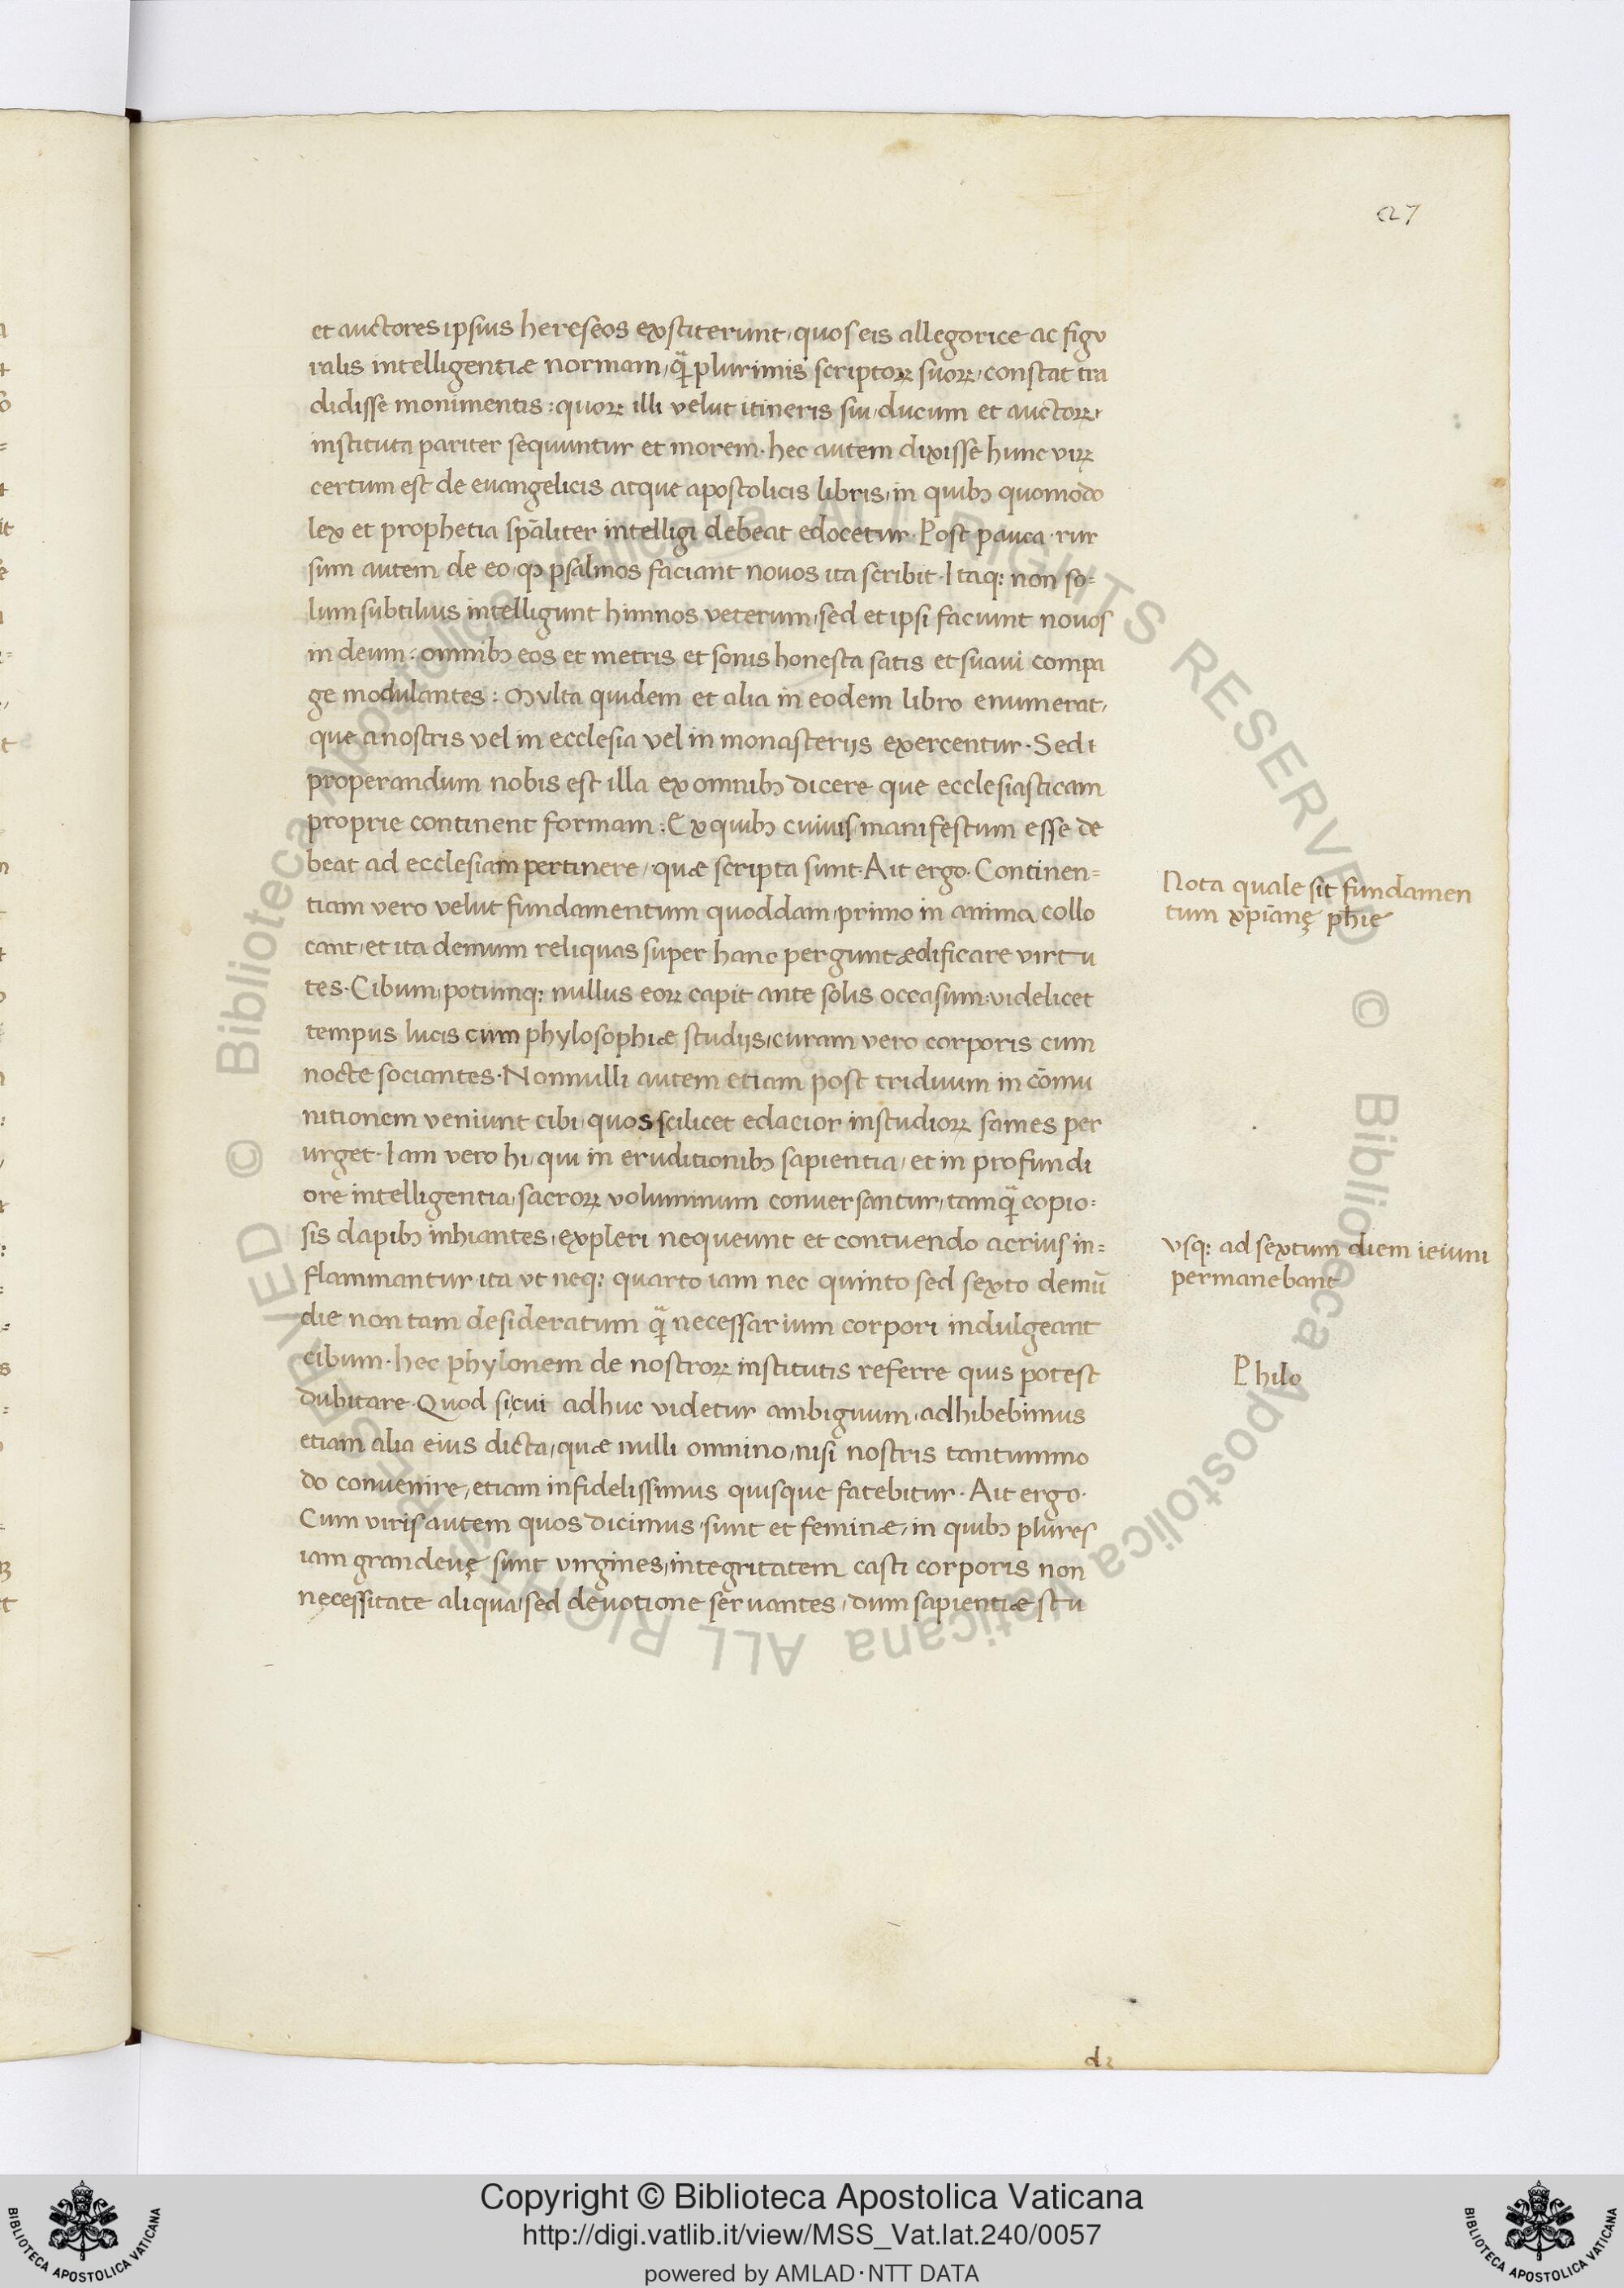 27
et auctores ipsius hereseos exstiterunt, quos eis allegorice ac figu
ralis intelligentiæ normam, qᷓ plurimis scriptoꝝ suoꝝ, constat tra
didisse monimentis: quoꝝ illi velut itineris sui, ducum et auctoꝝ,
instituta pariter sequuntur et morem. hec autem dixisse hunc viꝝ
certum est de euangelicis atque apostolicis libris, in quibꝫ quomodo
lex et prophetia spāliter intelligi debeat edocetur. Post pauca. rur
sum autem de eo qꝫ psalmos faciant novos ita scribit. Itaqꝫ non so=
lum subtilius intelligunt himnos veterum, sed et ipsi faciunt novos
in deum: omnibꝫ eos et metris et sonis honesta satis et suavi compa
ge modulantes: Multa quidem et alia in eodem libro enumerat,
que a nostris vel in ecclesia vel in monasterijs exercentur. Sed
properandum nobis est illa ex omnibꝫ dicere que ecclesiasticam
proprie continent formam: Ex quibꝫ cuiuis manifestum esse de
beat ad ecclesiam pertinere, quæ scripta sunt. Ait ergo. Continen=
tiam vero velut fundamentum quoddam, primo in anima collo
cant, et ita demum reliquas super hanc pergunt ædificare virtu
tes. Cibum, potumqꝫ nullus eoꝝ capit ante solis occasum: videlicet
tempus lucis cum phylosophiæ studijs, curam vero corporis cum
nocte sociantes. Nonnulli autem etiam post triduum in cōmu
nitionem veniunt cibi, quos scilicet edacior in studioꝝ fames per
urget. Iam vero hi, qui in eruditionibꝫ sapientia, et in profundi
ore intelligentia, sacroꝝ voluminum conversantur, tamqᷓ copio=
sis dapibꝫ inhiantes, expleri nequeunt et contuendo acrius in=
flammantur ita ut neqꝫ quarto iam nec quinto sed sexto demū
die non tam desideratum qᷓ necessarium corpori indulgeant
cibum. hec phylonem de nostroꝝ institutis referre quis potest
dubitare. Quod si cui adhuc videtur ambiguum, adhibebimus
etiam alia eius dicta, quæ nulli omnino, nisi nostris tantummo
do convenire, etiam infidelissimus quisque fatebitur. Ait ergo.
Cum viris autem quos dicimus, sunt et feminæ, in quibꝫ plures
iam grandeuę sunt virgines, integritatem casti corporis non
necessitate aliqua, sed devotione servantes, dum sapientiæ stu
Nota quale sit fundamen
tum xp̄ianę phie
usqꝫ ad sextum diem ieiuni
permanebant
Philo
d
© Biblioteca Apostolica Vaticana ALL RIGHTS RESERVED © Biblioteca Apostolica Vaticana ALL RIGHTS RESERVED
Copyright © Biblioteca Apostolica Vaticana
http://digi.vatlib.it/view/MSS_Vat.lat.240/0057
powered by AMLAD·NTT DATA
BIBLIOTECA APOSTOLICA VATICANA
BIBLIOTECA APOSTOLICA VATICANA